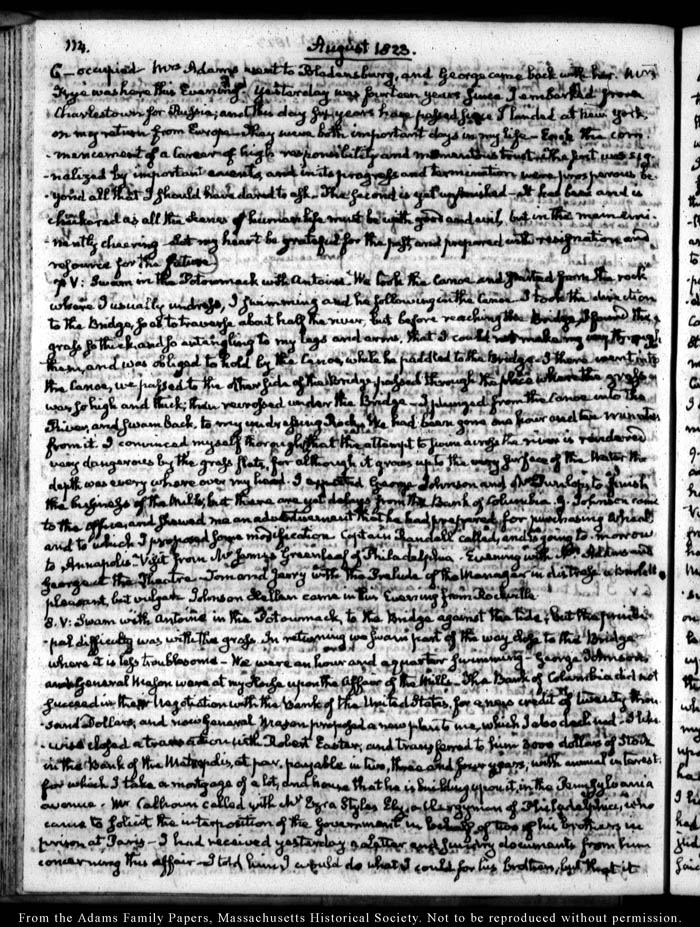 114.
August 1823.
6— occupied. Mrs Adams went to Bladensburg, and George came back with her. Mrs
Frye was here this Evening. Yesterday was fourteen years since I embarked from
Charlestown for Russia; and this day six years have passed since I landed at New York,
on my return from Europe. They were both important days in my life— Each the com-
-mencement of a career of high responsibility and momentous trust. The first was sig-
-nalized by important events, and in its progress and termination were prosperous be-
-yond all that I should have dared to ask. The second is yet unfinished— It had been and is
checkered as all the scenes of human life must be with good and evil, but in the main emi-
-nently cheering— Let my heart be grateful for the past, and prepared with resignation and
resource for the future.
7. V: Swam in the Potowmack with Antoine. We took the Canoe and started from the rock
where I usually undress, I swimming and he following in the Canoe. I took the direction
to the Bridge, so as to traverse about half the river, but before reaching the Bridge, I found the
grass so thick, and so entangling to my legs and arms, that I could not make my way through
them, and was obliged to hold by the Canoe, while he paddled to the Bridge. I there went into
the Canoe, we passed to the other side of the Bridge, passed through the place where the grass
was so high and thick; then recrossed under the Bridge— I plunged from the Canoe into the
River, and swam back to my undressing Rock. We had been gone one hour and ten minutes
from it. I convinced myself thoroughly that the attempt to swim across the river is rendered
very dangerous by the grass flats, for although it grows up to the very surface of the Water the
depth was every where over my head. I expected George Johnson and Mr Dunlop to finish
the business of the Mills; but there are yet delays from the Bank of Columbia. G. Johnson came
to the office, and shewed me an advertisement that he had prepared for purchasing Wheat
and to which I proposed some modification. Captain Randall called, and is going to-morrow
to Annapolis. Visit from Mr James Greenleaf of Philadelphia. Evening with Mrs Adams and
George at the Theatre— Tom and Jerry with the Prelude of the Manager in distress. Bartlett
pleasant, but vulgar. Johnson Hellen came in this Evening from Rockville.
8. V: Swam with Antoine in the Potowmack, to the Bridge against the tide; but the princi-
-pal difficulty was with the grass. In returning we swam part of the way close to the Bridge
where it is less troublesome— We were an hour and a quarter swimming. George Johnson
and General Mason were at my House upon the Affair of the Mills. The Bank of Columbia did not
succeed in their Negotiation with the Bank of the United States, for a new credit of twenty thou-
-sand Dollars, and now General Mason proposed a new plan to me, which I also declined. I like-
-wise closed a transaction with Robert Easter, and transferred to him 3000 dollars of Stock
in the Bank of the Metropolis, at par, payable in two, three and four years, with annual interest;
for which I take a mortgage of a lot, and house that he is building upon it, in the Pennsylvania
avenue. Mr Calhoun called with Mr Ezra Styles Ely, a Clergyman of Philadelphia, who
came to solicit the interposition of the Government in behalf of two of his brothers in
prison at Paris— I had received yesterday a letter and sundry documents from him
concerning this affair— I told him I would do what I could for his brothers, but that it
From the Adams Family Papers, Massachusetts Historical Society. Not to be reproduced without permission.